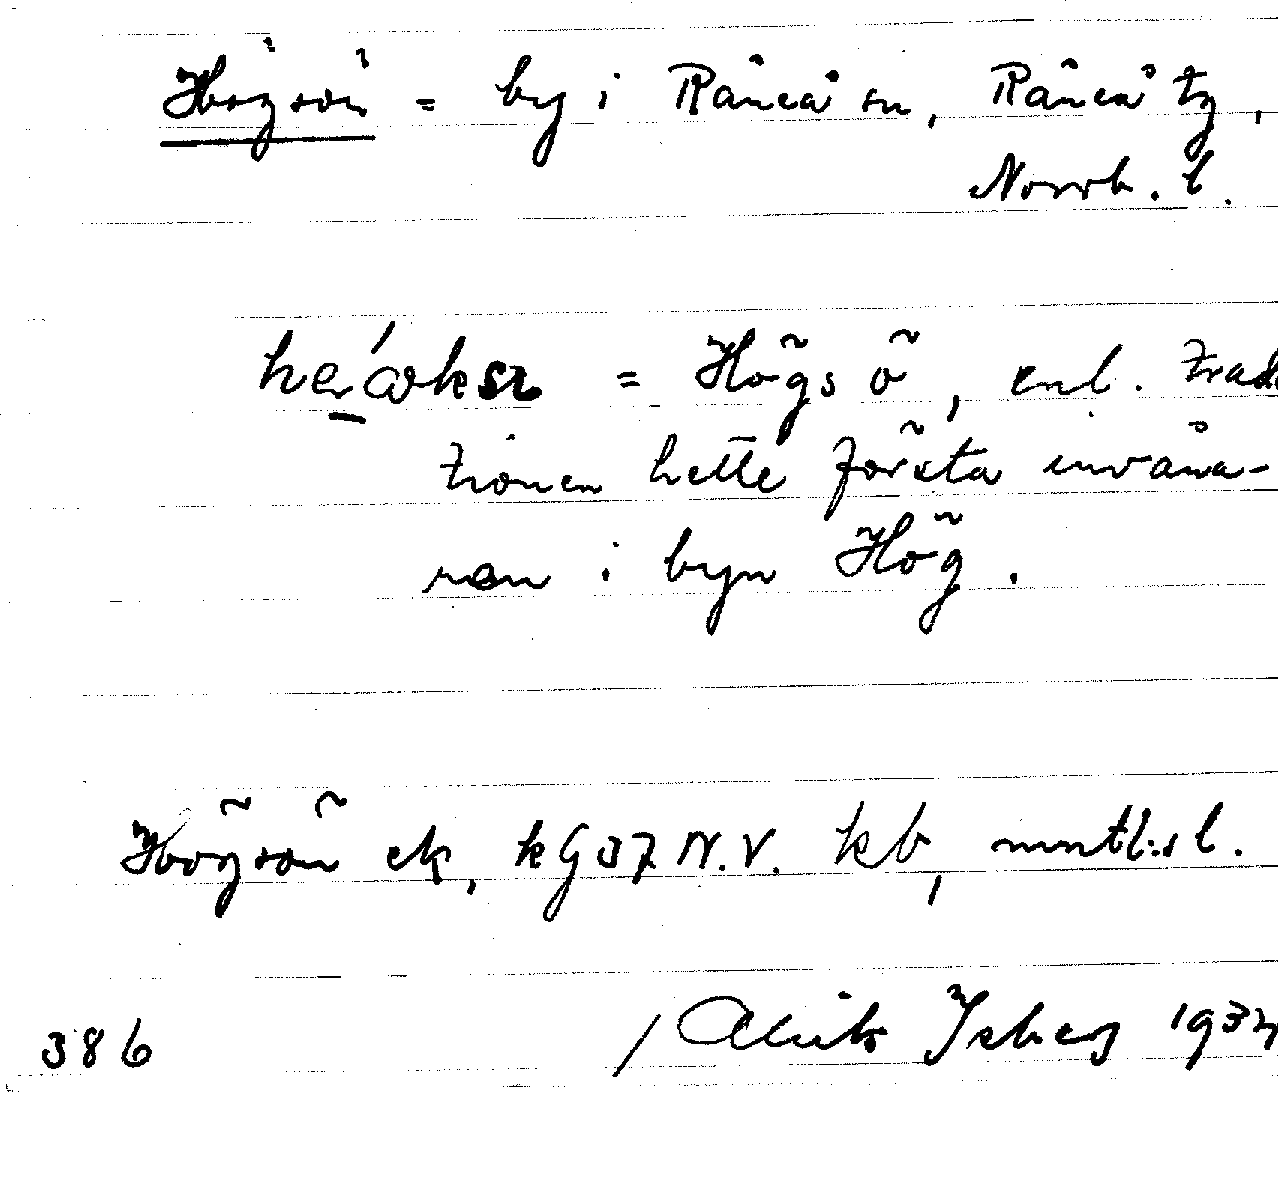 Högsön = by i Råneå sn, Råneå tg,
Norrb. l.
= Högs ö, enl. Tradi
tionen hette första invåna-
ren i byn Hög.
Högsön ek, kG37 N.V. kb, mntl.sl.
386 / Alrik Isberg 193